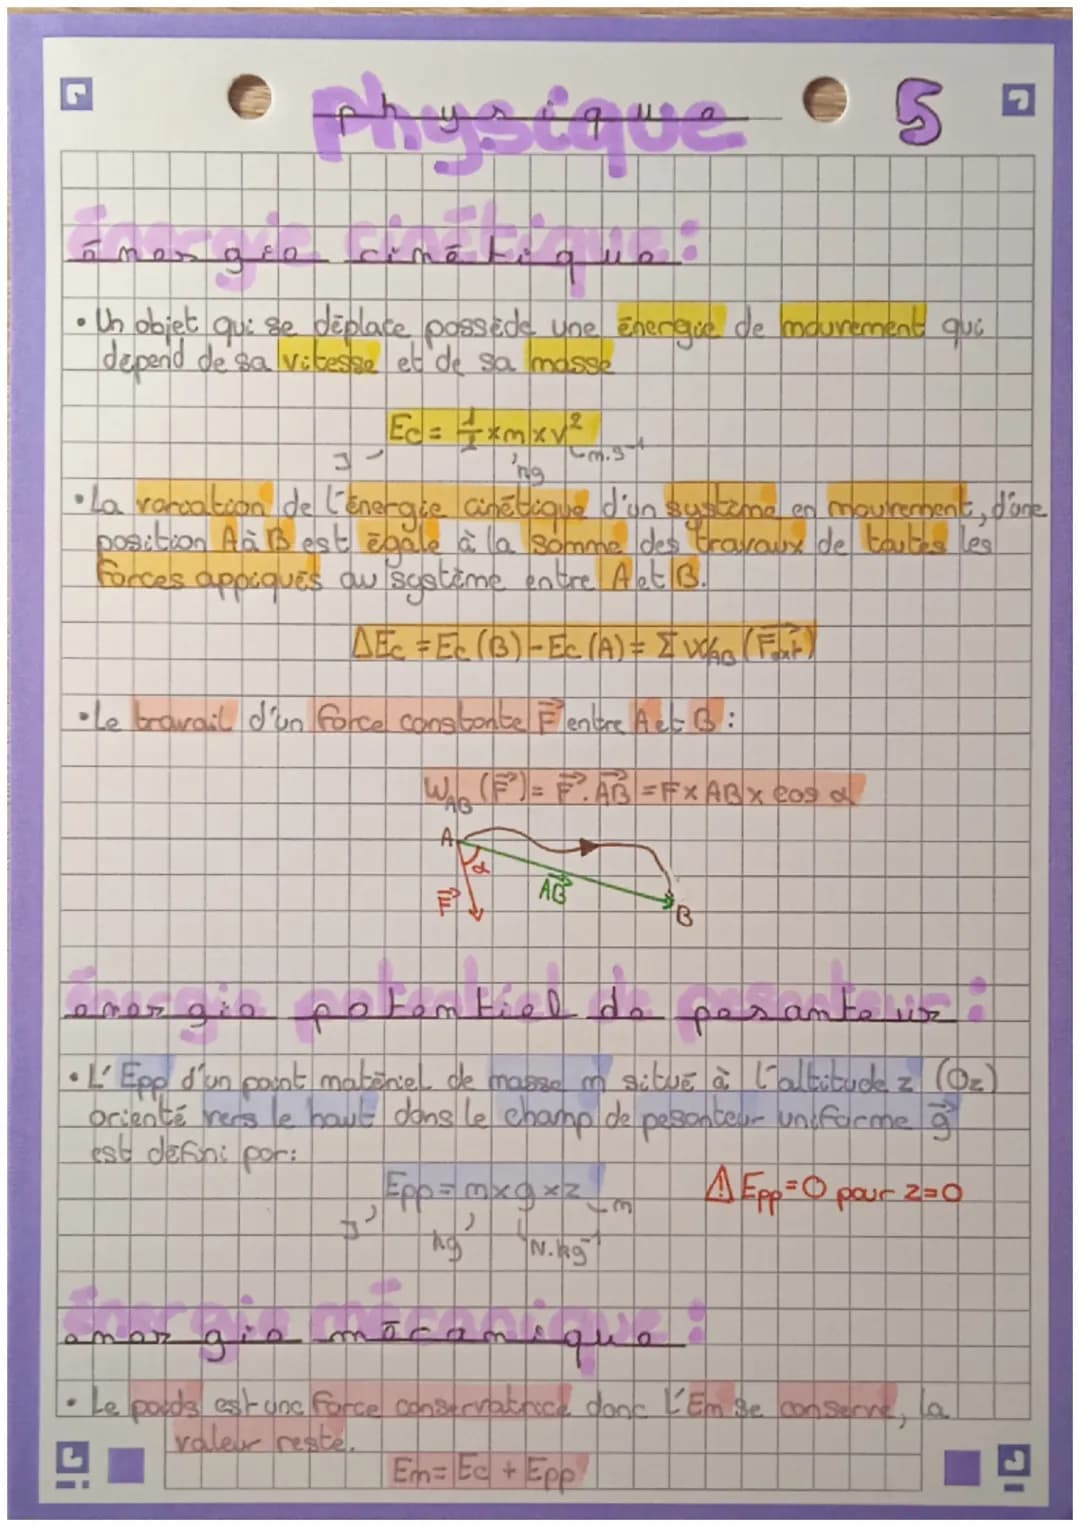 Physique 5
énergie cinétique :
• Un objet qui se déplace possède une énergie de mouvement qui
dépend de sa vitesse et de sa masse
Ec = 1/2 x m x v²
J kg m.s⁻¹
• La variation de l'énergie cinétique d'un système en mouvement, d'une
position A à B est égale à la somme des travaux de toutes les
forces appiqués au système entre A et B.
ΔEc = Ec (B) - Ec (A) = Σ W_AB (F⃗ext)
• Le travail d'un force constante F⃗ entre A et B :
W_AB (F⃗) = F⃗ . AB⃗ = F x AB x cos α
A
α
F⃗ AB⃗
B
énergie potentiel de pesanteur :
• L'Epp d'un point matériel de masse m situé à l'altitude z (Oz)
orienté vers le haut dans le champ de pesanteur uniforme g⃗
est défini par :
Epp = m x g x z ⚠ Epp = 0 pour z = 0
J kg N.kg⁻¹ m
énergie mécanique :
• Le poids est une force conservatrice donc l'Em se conserve, la
valeur reste.
Em = Ec + Epp